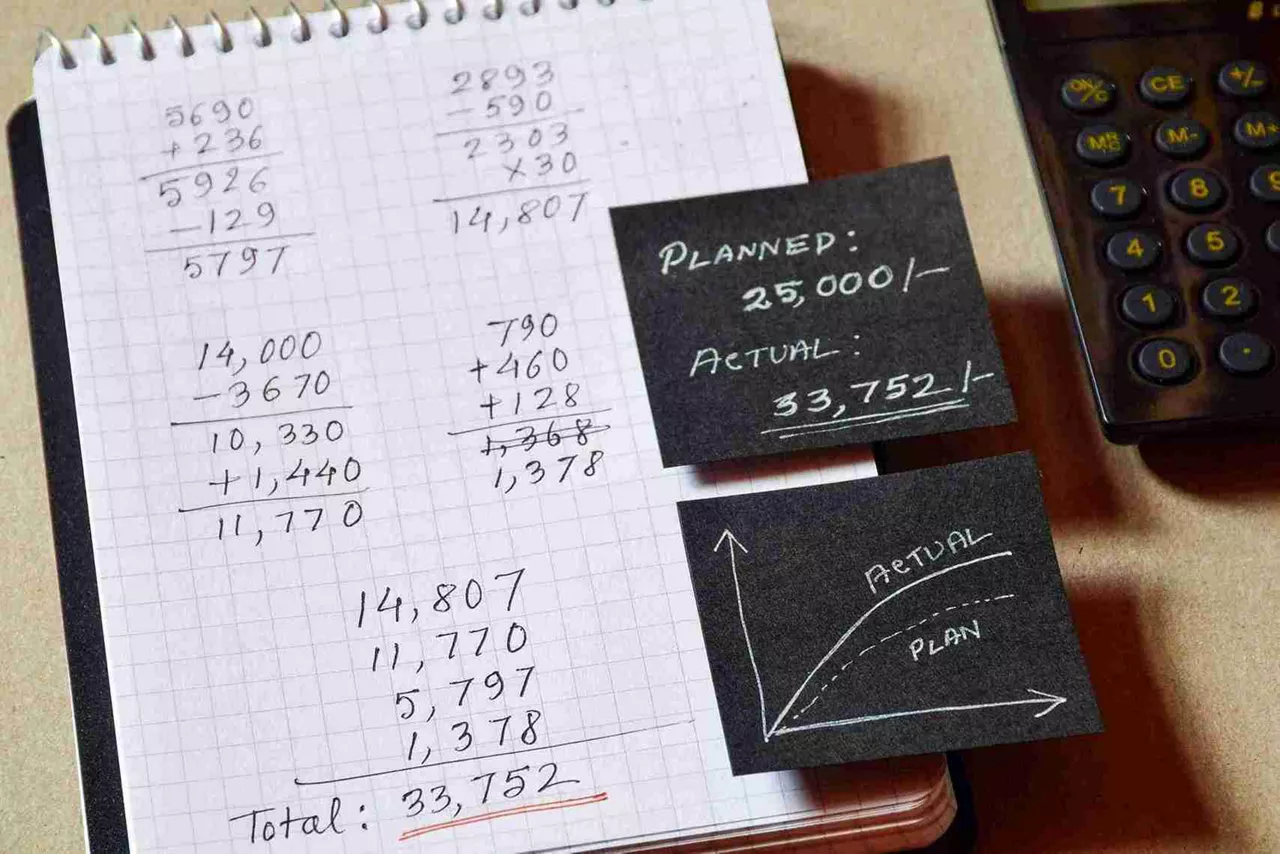 5690
+236
5926
-129
5797
2893
-590
2303
×30
14,807
14,000
-3670
10,330
+1,440
11,770
790
+460
+128
1,368
1,378
14,807
11,770
5,797
1,378
Total: 33,752
PLANNED:
25,000/-
ACTUAL:
33,752/-
ACTUAL
PLAN
ON/C CE +/-
MRC M- M+
7 8 9
4 5
1 2
0 .